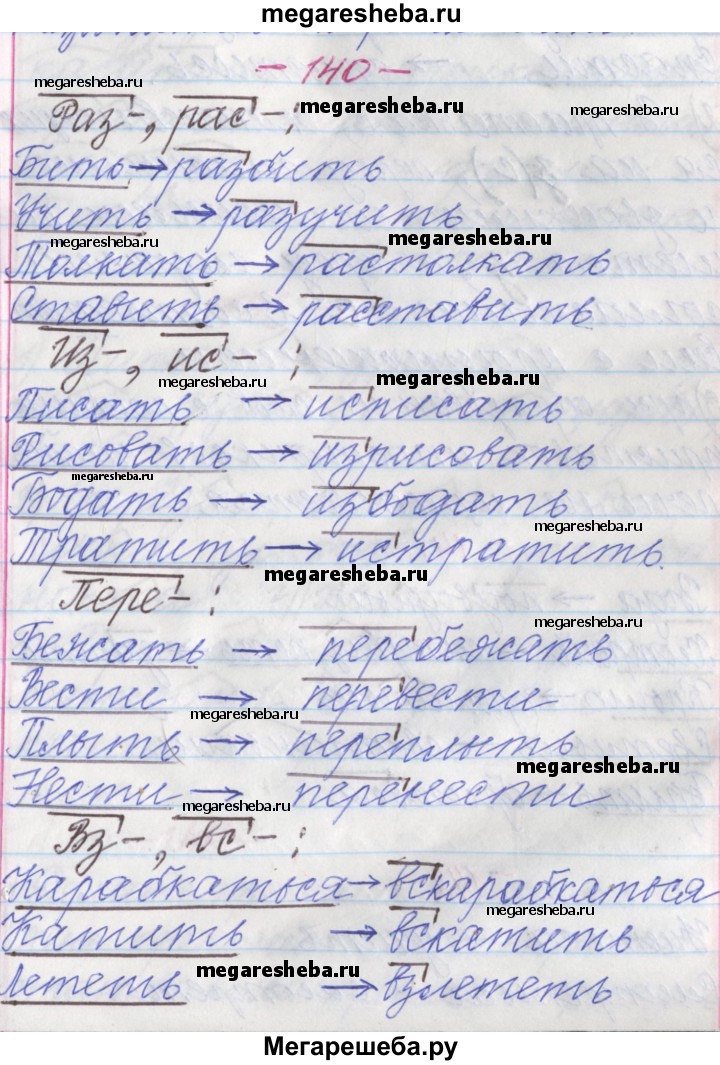 megaresheba.ru
- 140 -
megaresheba.ru
megaresheba.ru
megaresheba.ru
Раз-, рас-:
Бить → разбить
Учить → разучить
megaresheba.ru
megaresheba.ru
Толкать → растолкать
Ставить → расставить
Из-, ис-:
megaresheba.ru
megaresheba.ru
Писать → исписать
Рисовать → изрисовать
megaresheba.ru
Бодать → избодать
megaresheba.ru
Тратить → истратить.
megaresheba.ru
Пере-:
megaresheba.ru
Бежать → перебежать
Вести → перевести
megaresheba.ru
Плыть → переплыть
megaresheba.ru
Нести → перенести
megaresheba.ru
Вз-, вс-:
Карабкаться → вскарабкаться
megaresheba.ru
Катить → вскатить
megaresheba.ru
Лететь → взлететь
Мегарешеба.ру